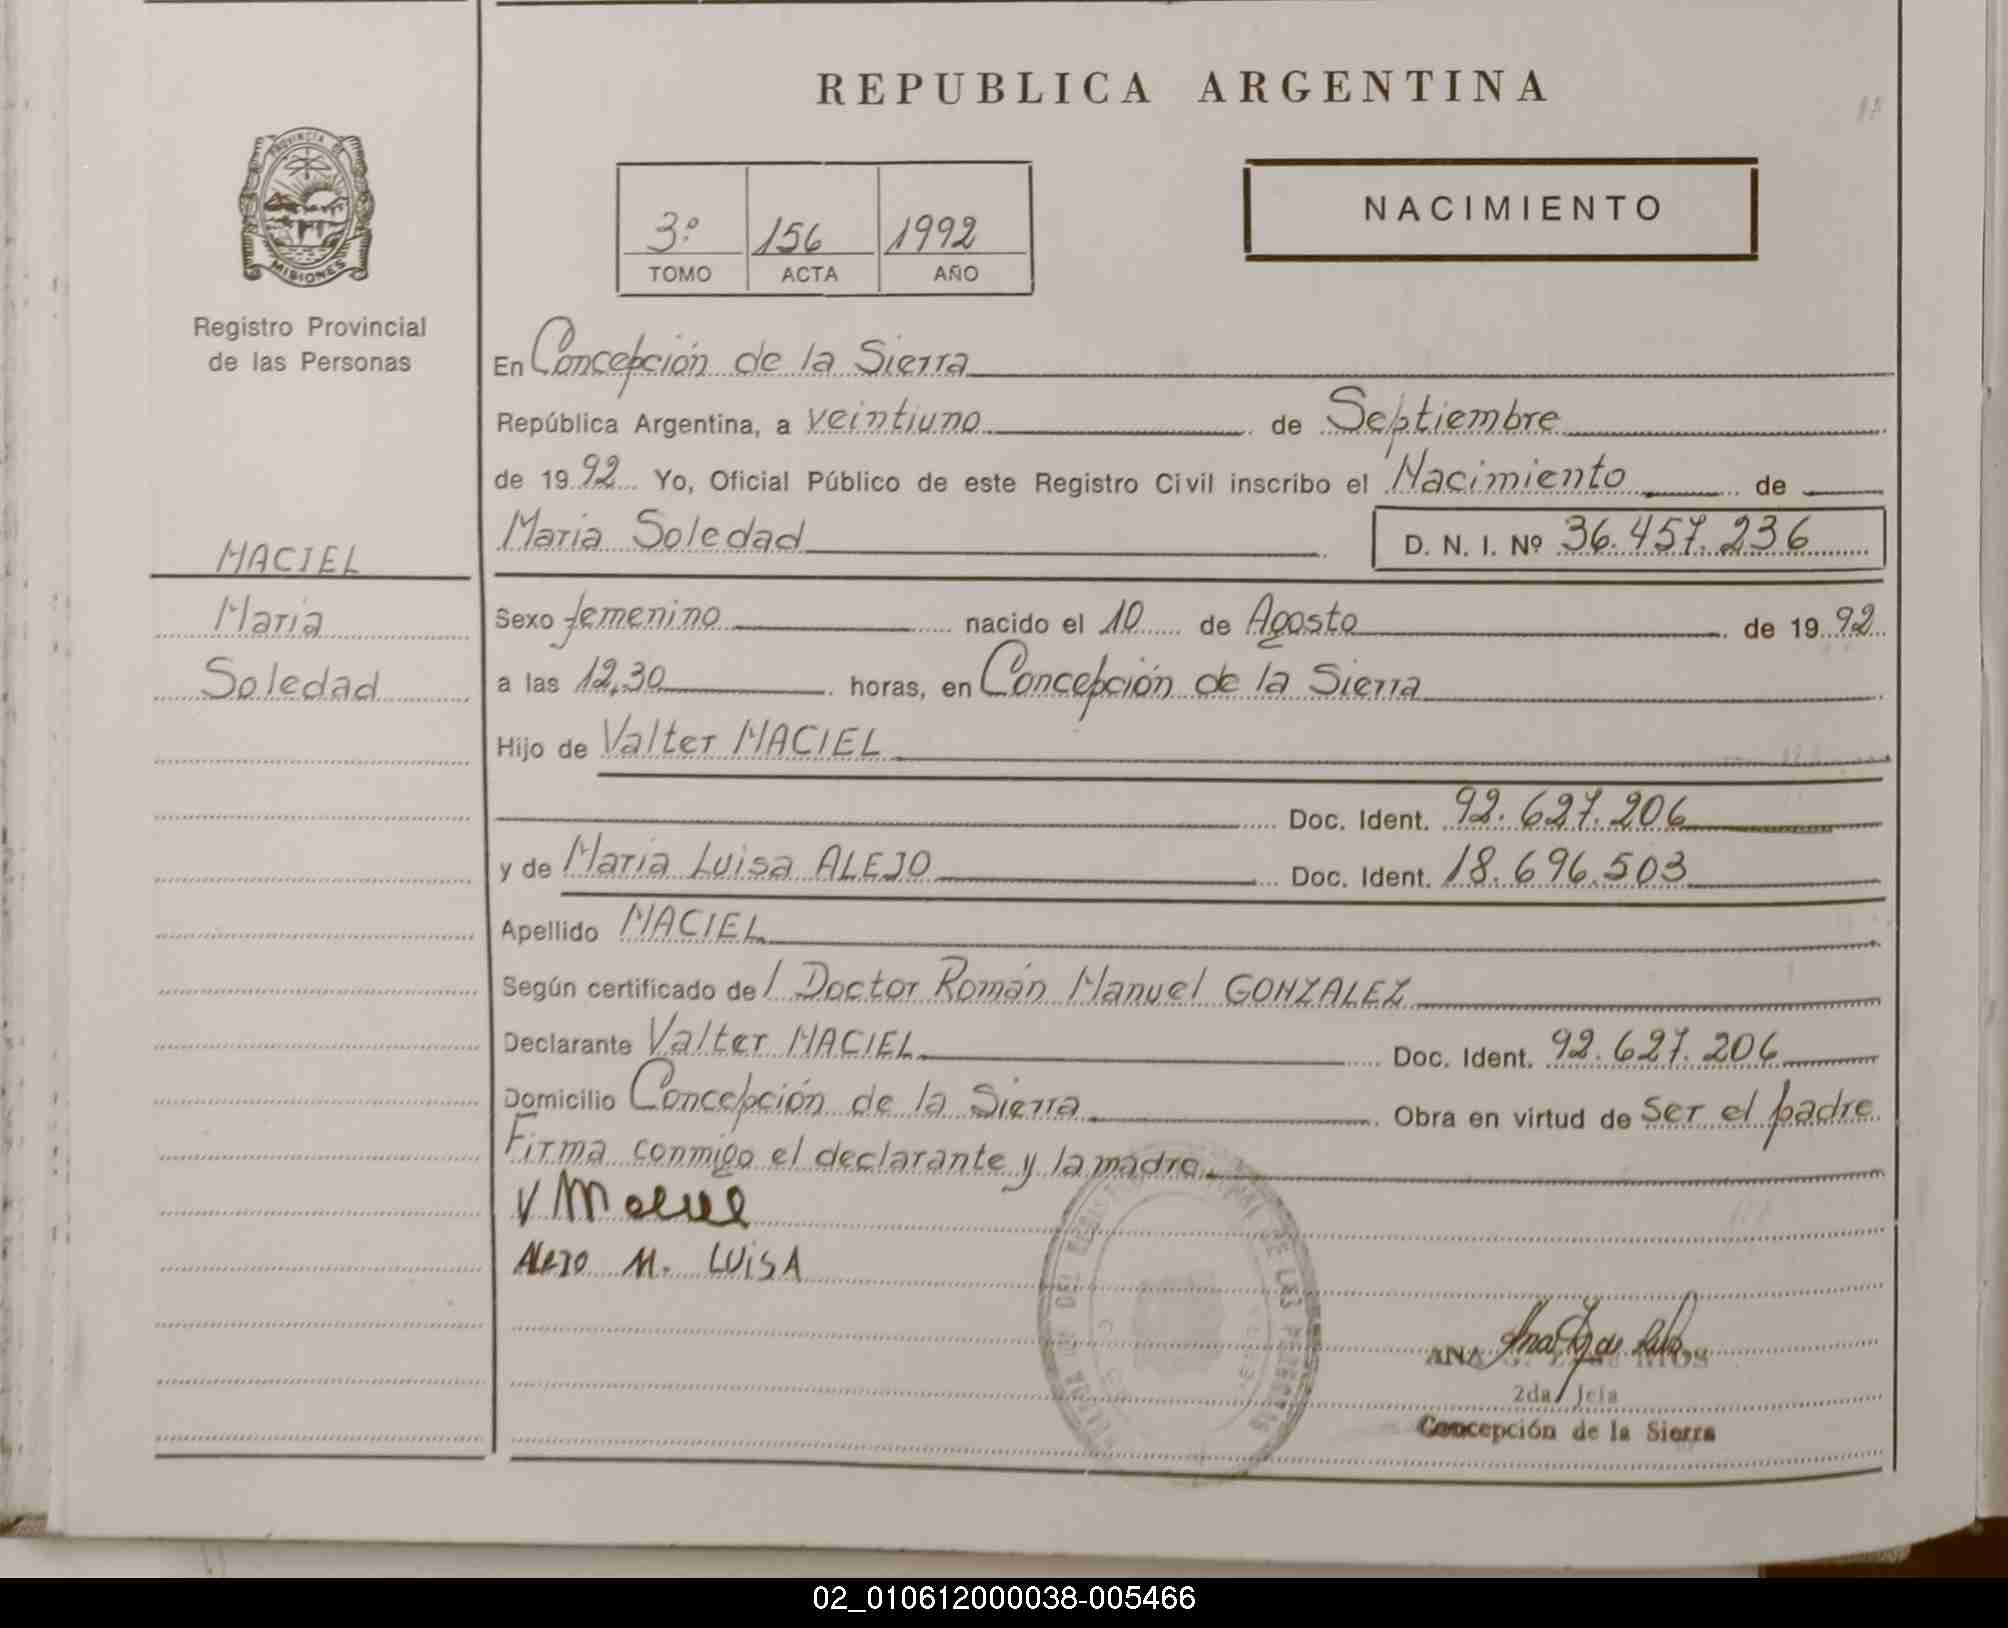 REPUBLICA ARGENTINA
PROVINCIA DE
MISIONES
Registro Provincial
de las Personas
3º 156 1992
TOMO ACTA AÑO
NACIMIENTO
En Concepción de la Sierra
República Argentina, a veintiuno de Septiembre
de 1992 Yo, Oficial Público de este Registro Civil inscribo el Nacimiento de
Maria Soledad D. N. I. Nº 36.457.236
MACIEL
Maria
Soledad
Sexo femenino nacido el 10 de Agosto de 1992
a las 12,30 horas, en Concepción de la Sierra
Hijo de Valter MACIEL
Doc. Ident. 92.627.206
y de Maria Luisa ALEJO Doc. Ident. 18.696.503
Apellido MACIEL
Según certificado de l Doctor Román Manuel GONZALEZ
Declarante Valter MACIEL Doc. Ident. 92.627.206
Domicilio Concepción de la Sierra Obra en virtud de ser el padre
Firma conmigo el declarante y la madre
V Maciel
Alejo M. LUISA
DE LAS PERSONAS
ANA RIOS
2da Jefa
Concepción de la Sierra
02_010612000038-005466